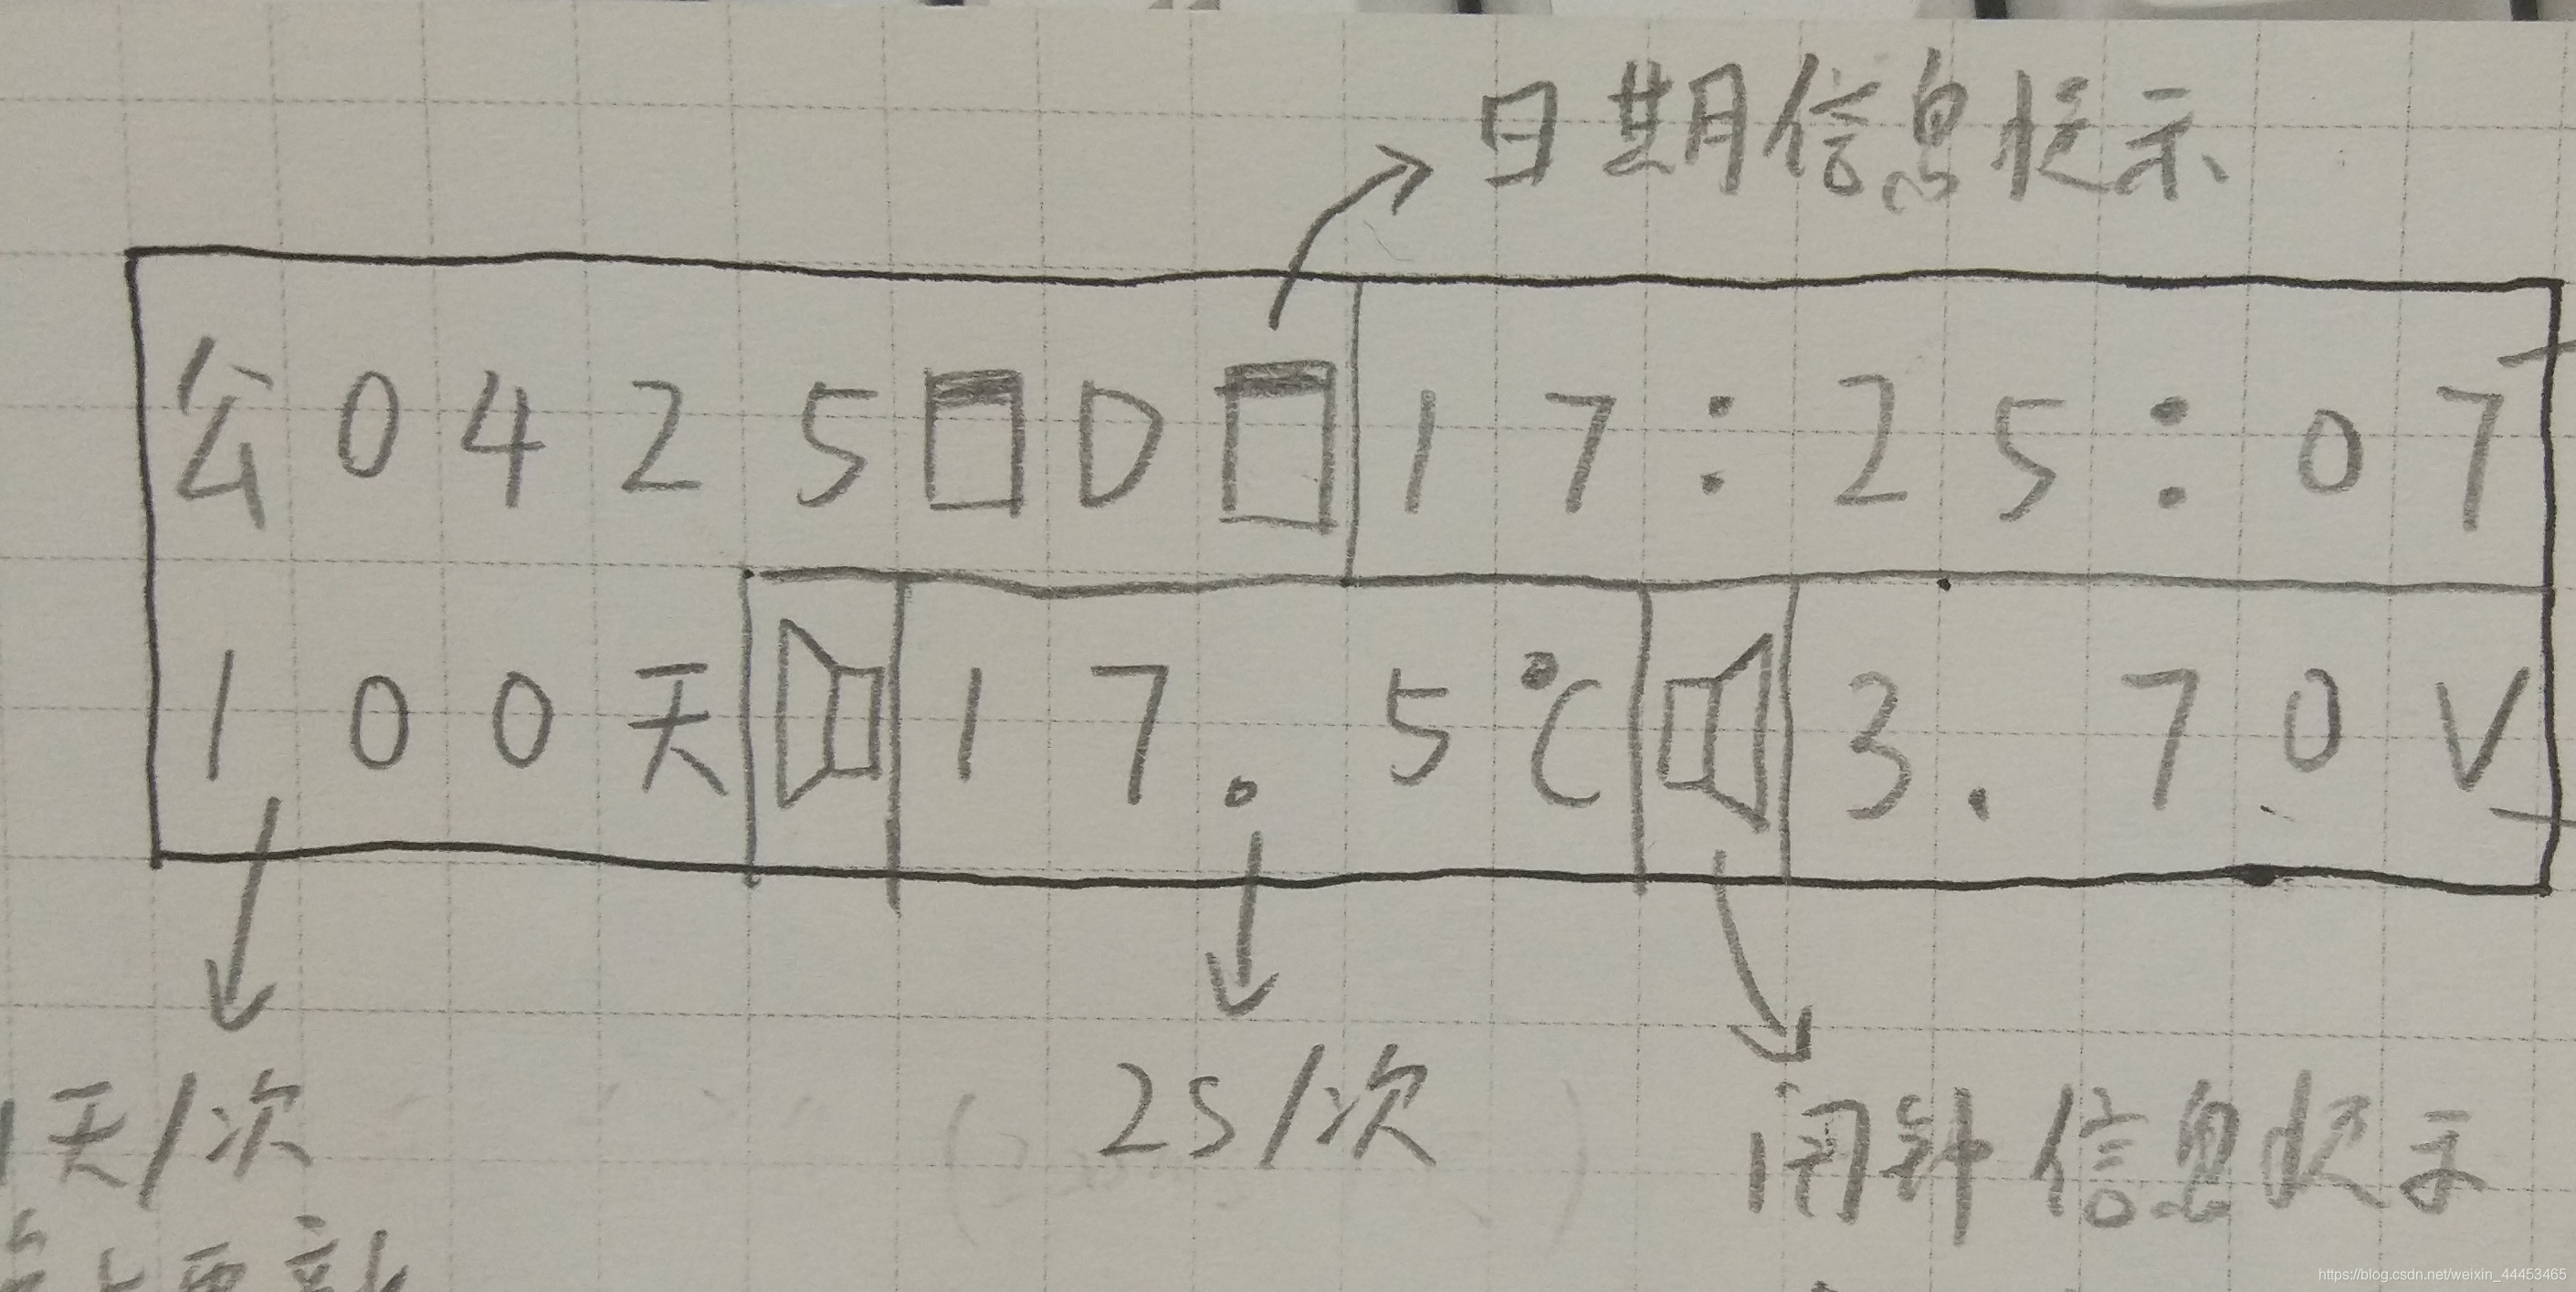 日期信息提示
公0425 D 17:25:07
100天 17.5℃ 3.70V
1天/次 2S/次 闹钟信息提示
更新
https://blog.csdn.net/weixin_44453465